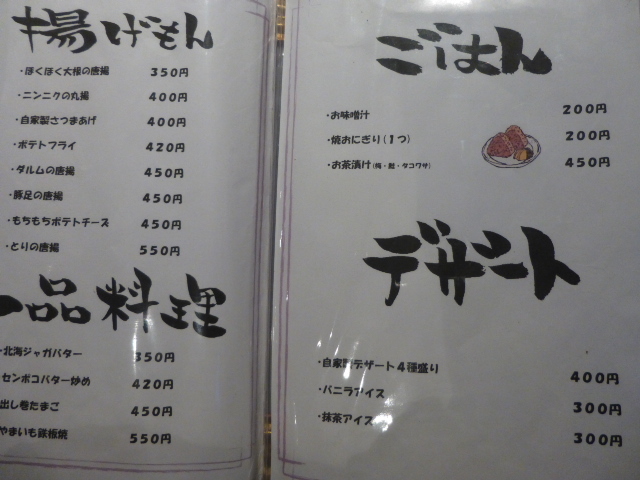 揚げもん
・ほくほく大根の唐揚 350円
・ニンニクの丸揚 400円
・自家製さつまあげ 400円
・ポテトフライ 420円
・ダルムの唐揚 450円
・豚足の唐揚 450円
・もちもちポテトチーズ 450円
・とりの唐揚 550円
一品料理
・北海ジャガバター 350円
センポコバター炒め 420円
出し巻たまご 450円
やまいも鉄板焼 550円
ごはん
・お味噌汁 200円
・焼おにぎり(1つ) 200円
・お茶漬け(梅・鮭・タコワサ) 450円
デザート
・自家製デザート4種盛り 400円
・バニラアイス 300円
・抹茶アイス 300円